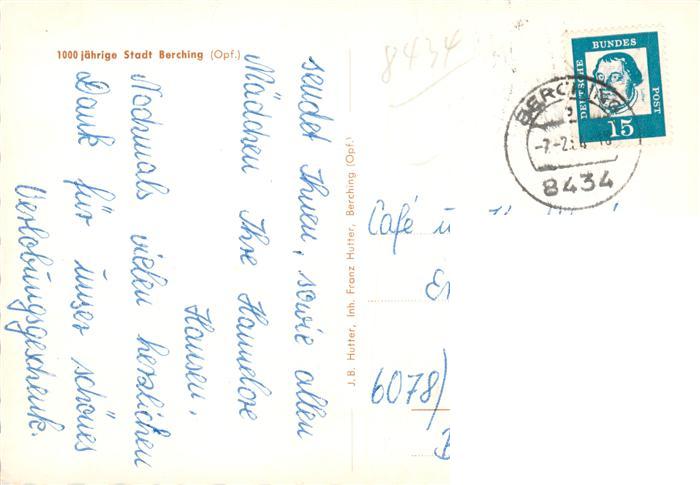 1000 jährige Stadt Berching (Opf.)
sendet Ihnen, sowie allen
Mädchen Ihre Hannelore
Hansen.
Nochmals vielen herzlichen
Dank für unser schönes
Verlobungsgeschenk.
J. B. Hutter, Inh. Franz Hutter, Berching (Opf.)
8434
DEUTSCHE
BUNDES
POST
15
BERCHING
8434
Café
6078/